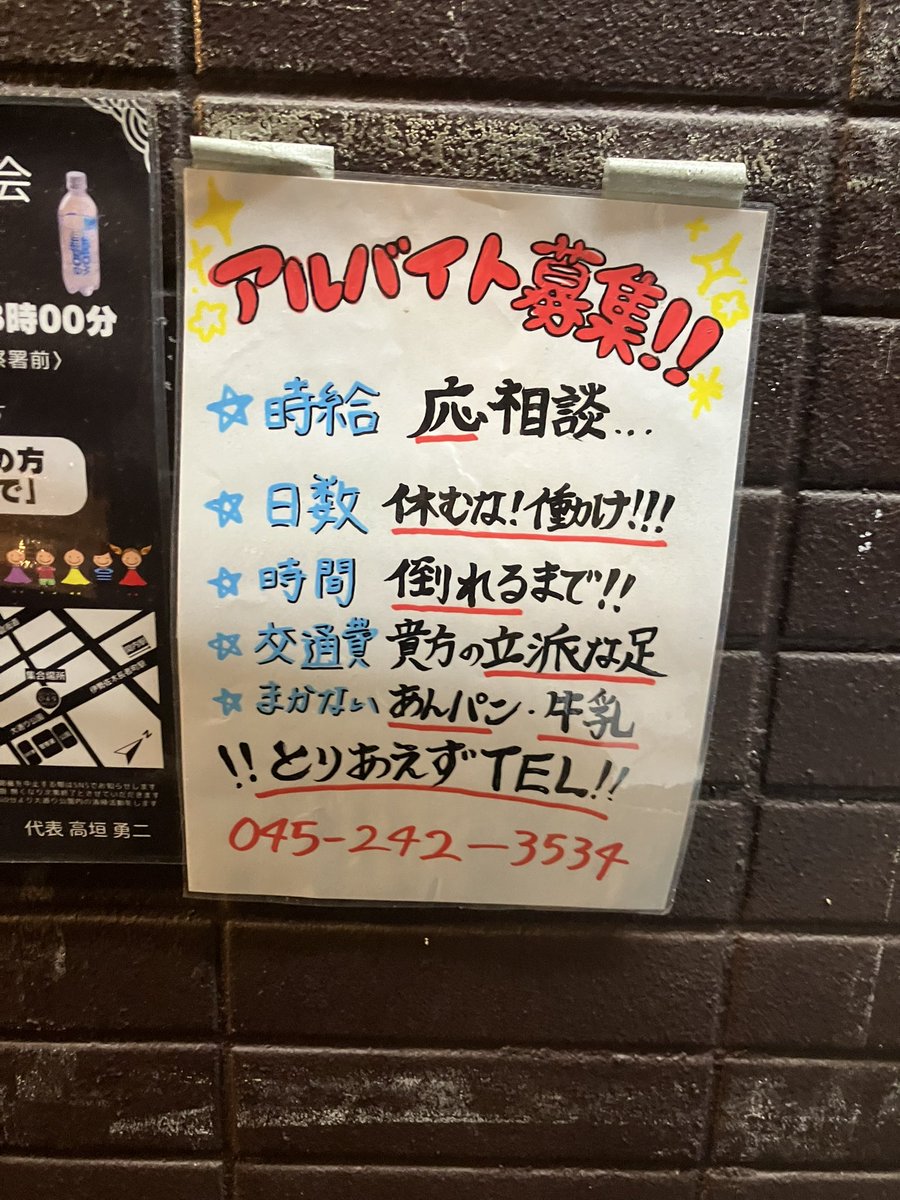 会
earth water
時00分
署前〉
の方
で」
集合場所
伊勢佐木長者町駅
大通り公園
Z
代表 高垣 勇二
アルバイト募集!!
☆時給 応相談...
☆日数 休むな!働け!!!
☆時間 倒れるまで!!
☆交通費 貴方の立派な足
☆まかない あんパン・牛乳
!!とりあえずTEL!!
045-242-3534